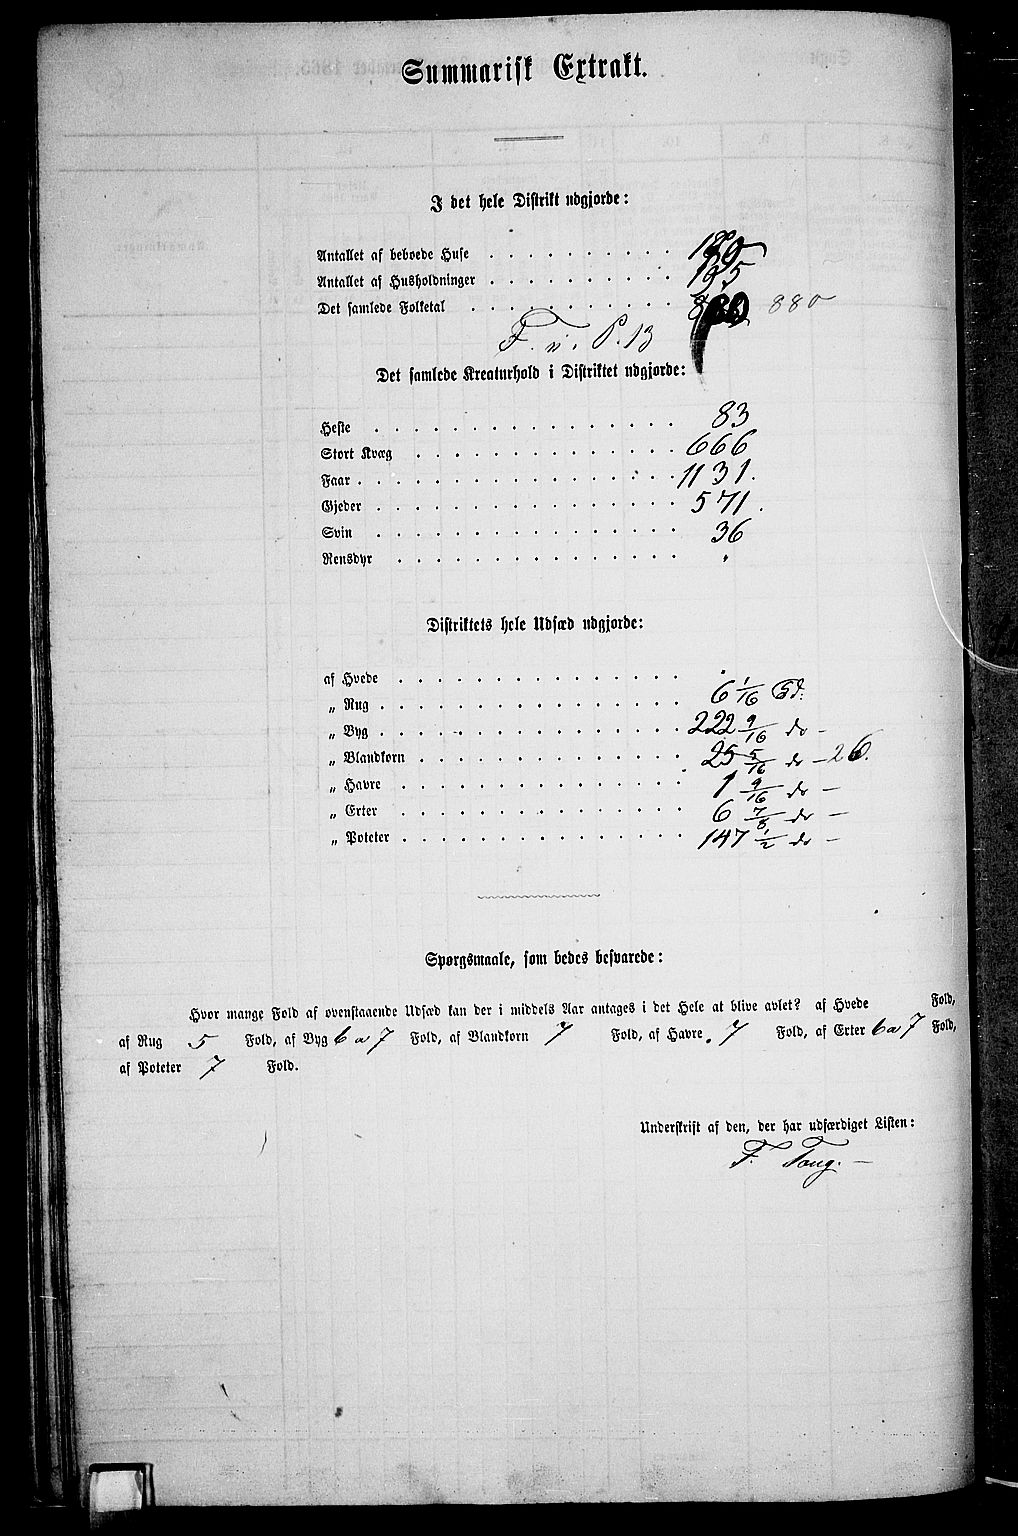 Summarisk Extrakt.
I det hele Distrikt udgjorde:
Antallet af beboede Huse
Antallet af Husholdninger 195
Det samlede Folketal 880
F. v. P. 13
Det samlede Kreaturhold i Distriktet udgjorde:
Heste 83
Stort Kvæg 666
Faar 1131.
Gjeder 571.
Svin 36
Rensdyr "
Distriktets hele Udsæd udgjorde:
af Hvede
„ Rug 6 1/16 Td:
„ Byg 222 9/16 do –
„ Blandkorn 25 5/16 do – 26.
„ Havre 1 9/16 do –
„ Erter 6 7/8 do –
„ Poteter 147 1/2 do –
Spørgsmaale, som bedes besvarede:
Hvor mange Fold af ovenstaaende Udsæd kan der i middels Aar antages i det Hele at blive avlet? af Hvede Fold,
af Rug 5 Fold, af Byg 6 a 7 Fold, af Blandkorn 7 Fold, af Havre 7 Fold, af Erter 6 a 7 Fold,
af Poteter 7 Fold.
Underskrift af den, der har udfærdiget Listen:
F. Tang. –